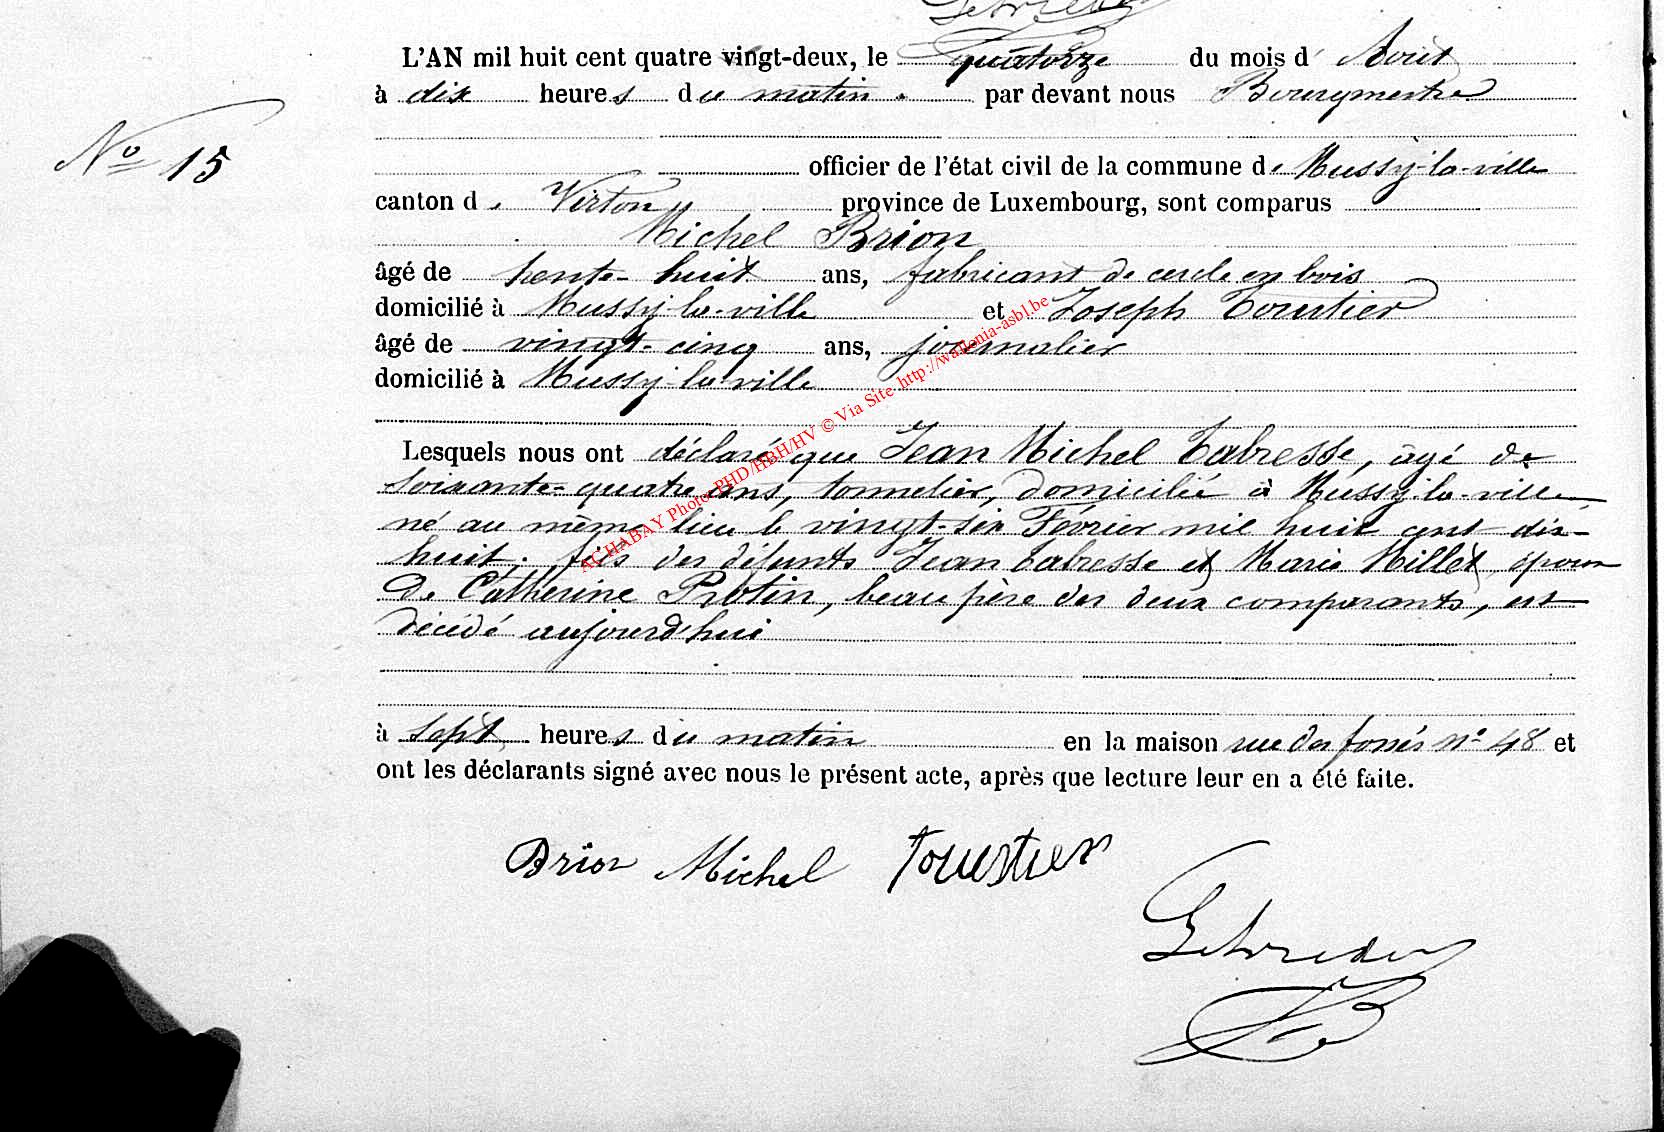 L'AN mil huit cent quatre vingt-deux, le quatorze du mois d' Août
à dix heures du matin. par devant nous Bourgmestre
N° 15
officier de l'état civil de la commune de Mussy-la-ville
canton de Virton province de Luxembourg, sont comparus
Michel Brion
âgé de trente-huit ans, fabricant de cercle en bois
domicilié à Mussy-la-ville et Joseph Toustier
âgé de vingt-cinq ans, journalier
domicilié à Mussy-la-ville
Lesquels nous ont déclaré que Jean Michel Tabresse, âgé de
soixante-quatre ans, tonnelier, domicilié à Mussy-la-ville
né au même lieu le vingt-six Février mil huit cent dix-
huit, fils des défunts Jean Tabresse et Marie Millet, époux
de Catherine Protin, beau père des deux comparants, est
décédé aujourd'hui
à sept heures du matin en la maison rue des fossés n° 48 et
ont les déclarants signé avec nous le présent acte, après que lecture leur en a été faite.
Brion Michel Toustier
ACHABAY Photo PHD/HBH/HV © Via Site http://wallonia-asbl.be